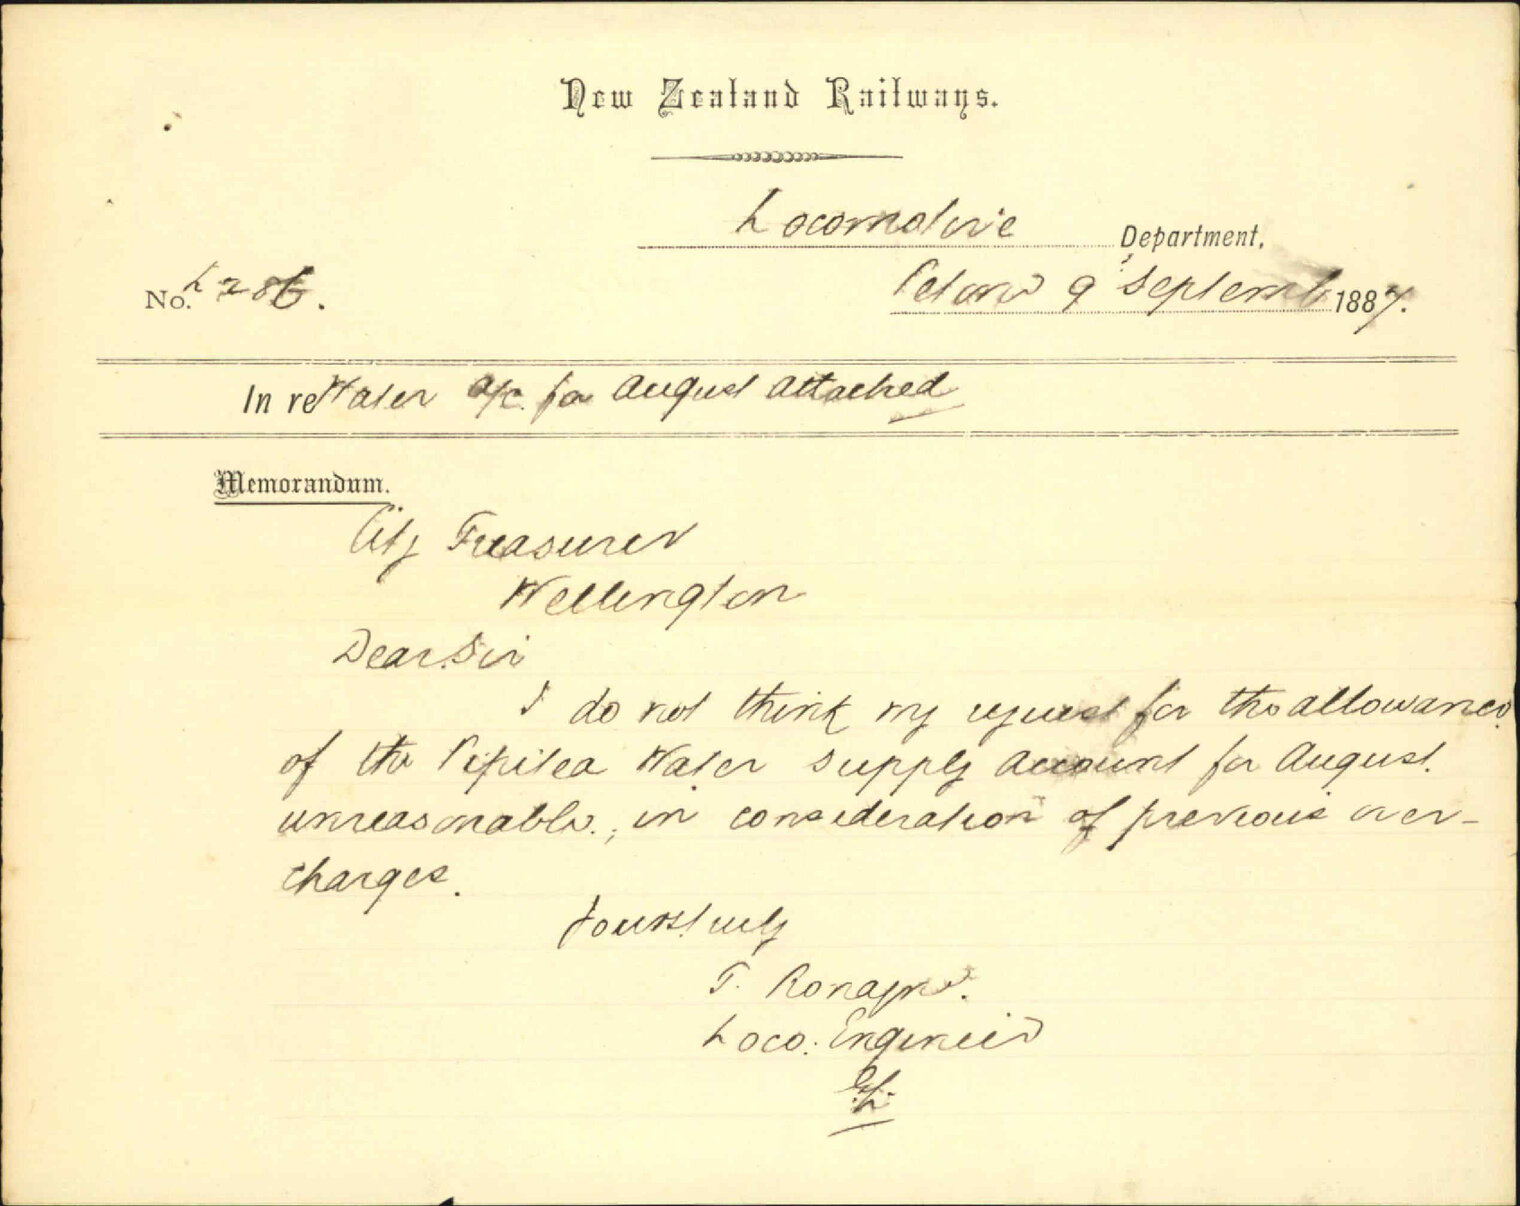 New Zealand Railways.
Locomotive Department,
No. L 286.
Petone 9 Septemb 1887.
In re Water a/c. for August attached
Memorandum.
City Treasurer
Wellington
Dear Sir
I do not think my request for the allowance
of the Pipitea Water Supply Account for August.
unreasonable, in consideration of previous over-
charges.
Yours truly
T.
Loco. Engineer